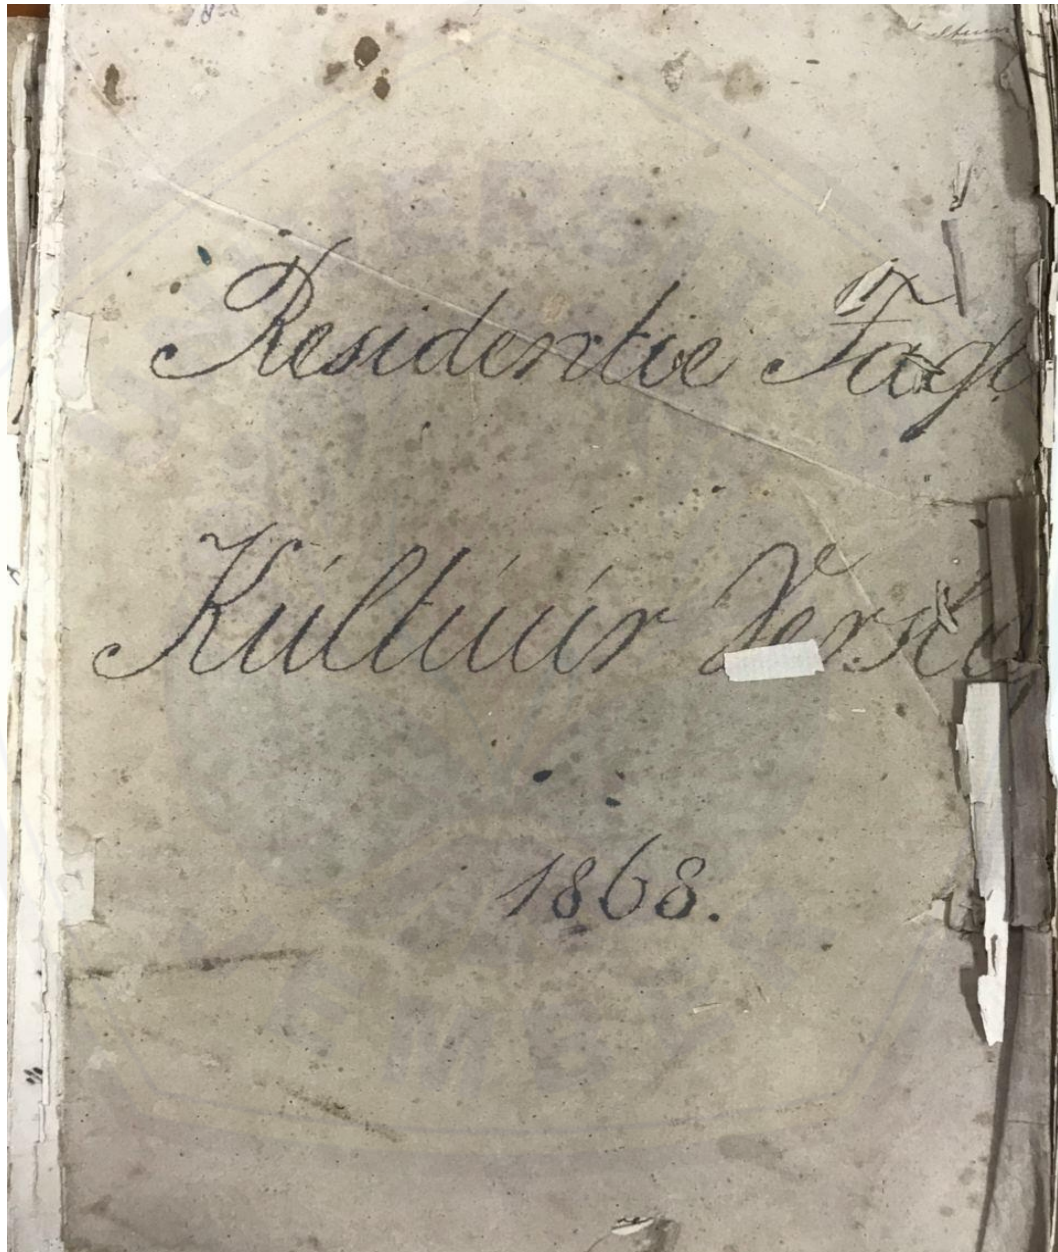 Residentie Tag
Kultuur Versl
1868.